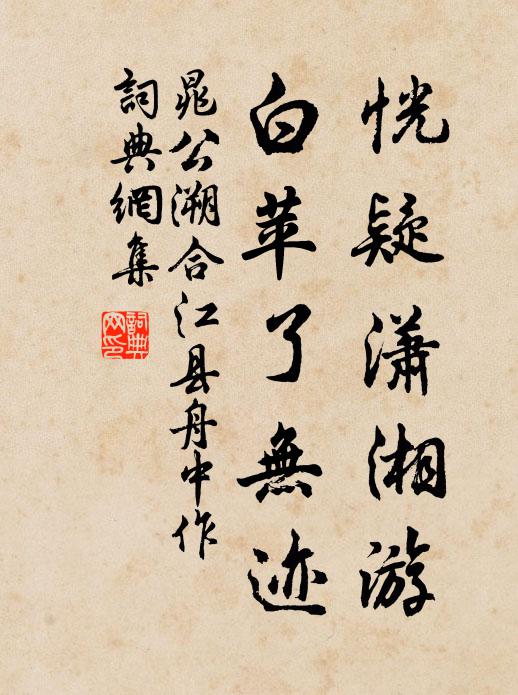 恍疑潇湘游
白苹了無迹
晁公溯合江县舟中作
詞典網集
詞典網印